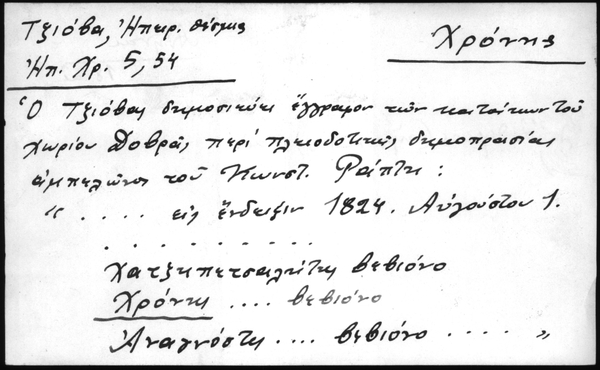 Τζιόβα, Ἠπειρ. θέσμια
Χρόνης
Ἠπ. Χρ. 5, 54
Ὁ Τζιόβας δημοσιεύει ἔγγραφον τῶν κατοίκων τοῦ
χωρίου Δοβρᾶς, περί πλειοδοτικῆς δημοπρασίας
ἀμπελῶνος τοῦ Κωνστ. Ράπτη :
" . . . . εἰς ἔνδειξιν 1824. Αὐγούστου 1.
. . . . . . . . . .
Χατζηπετσαλήτης βεβιόνο
Χρόνης .... βεβιόνο
Ἀναγνόστης .... βεβιόνο ..... "